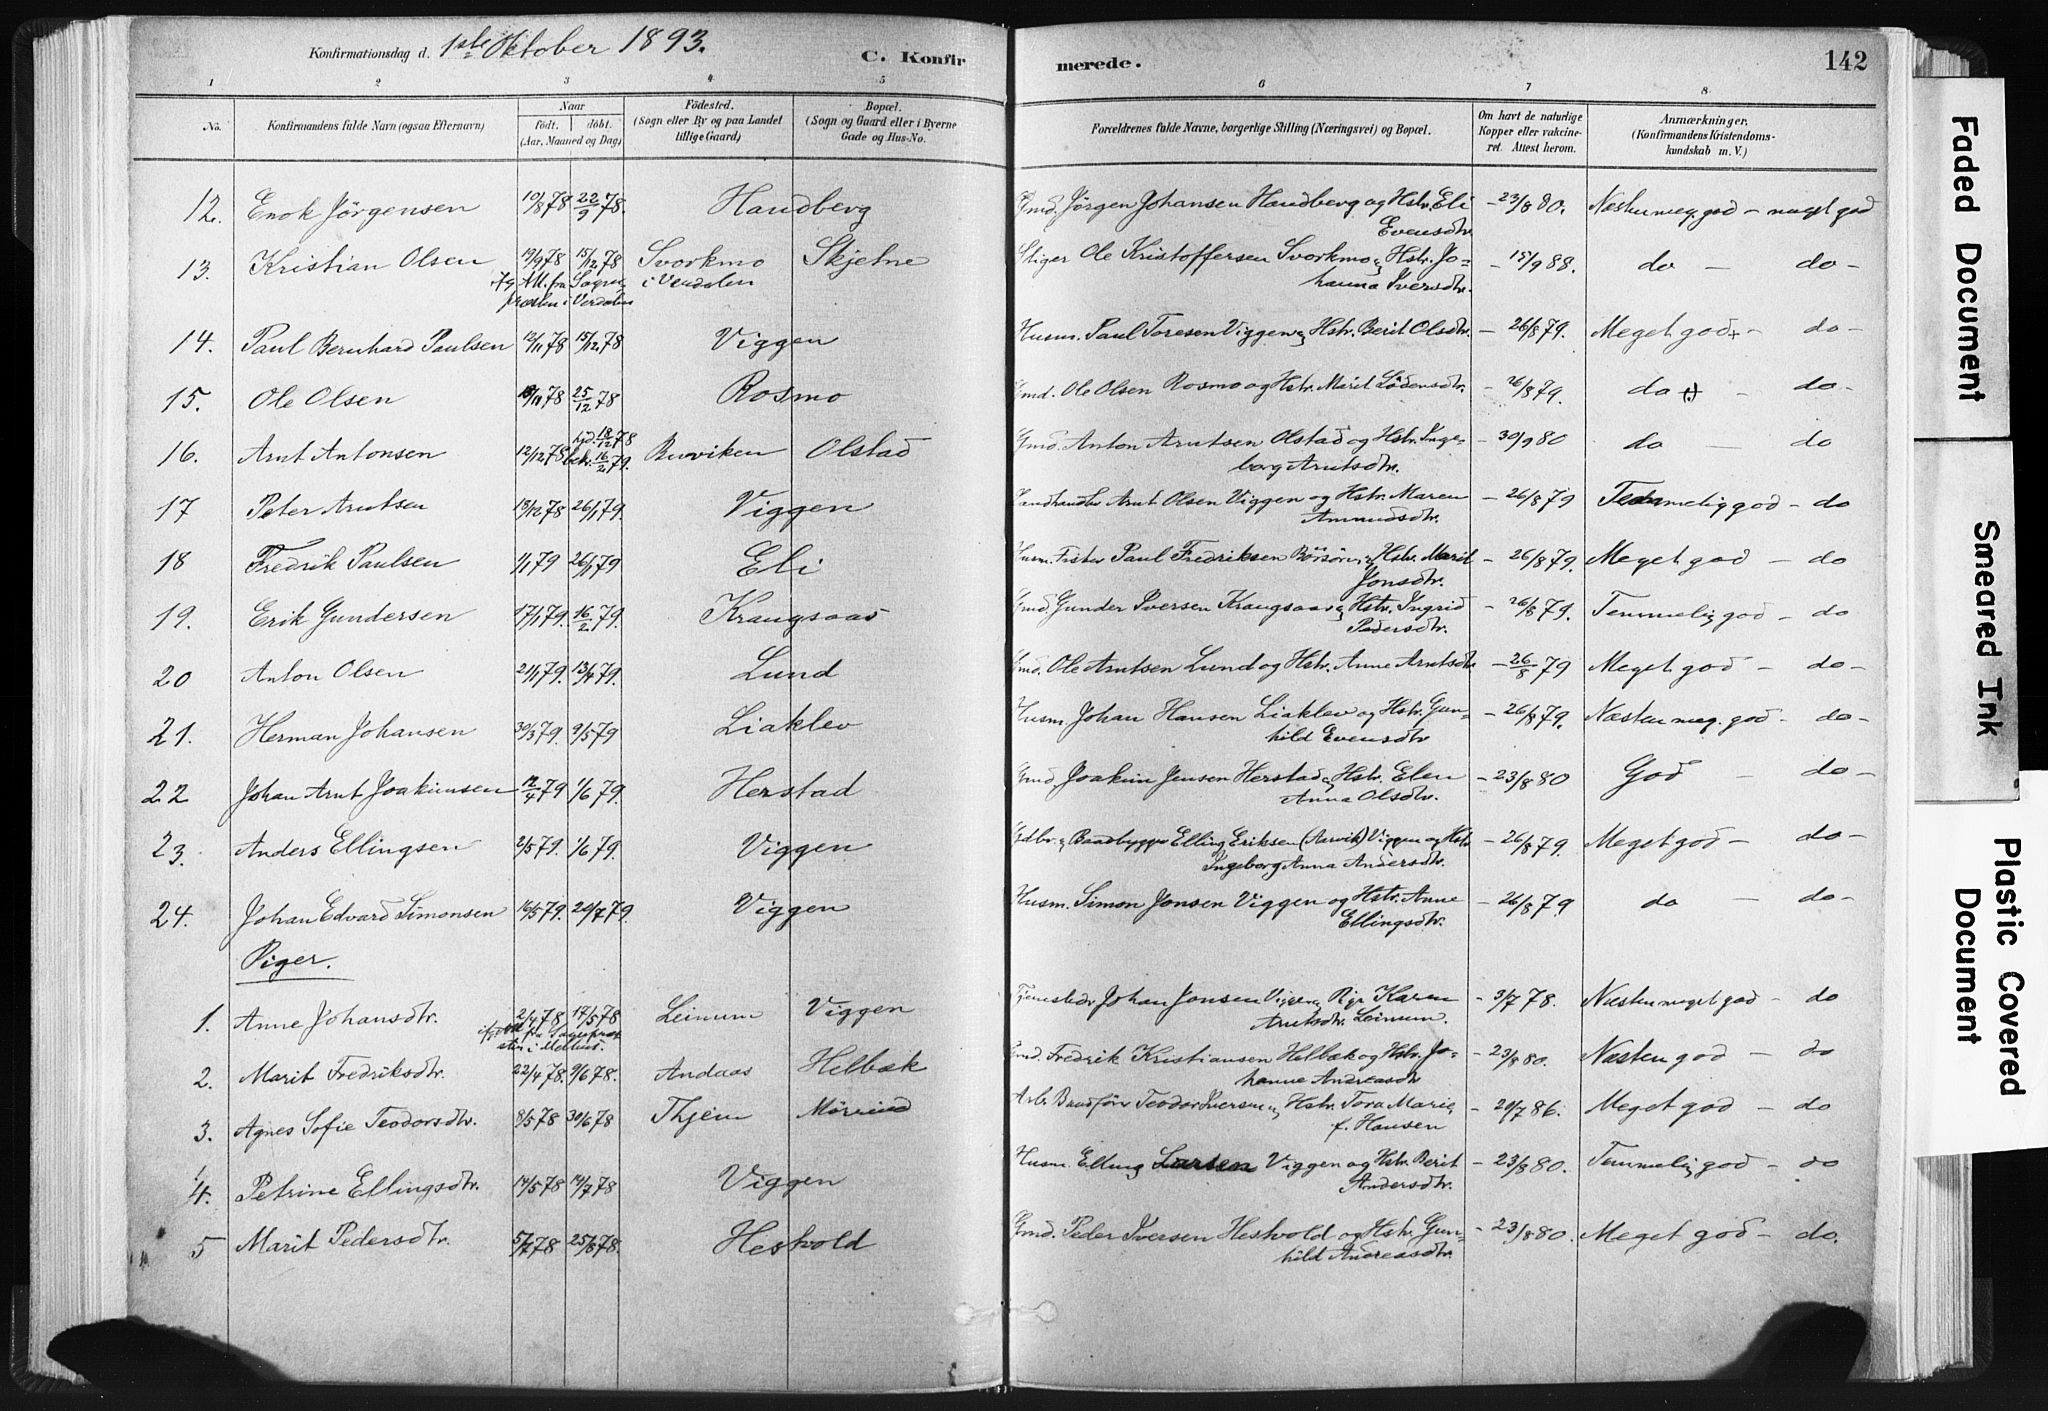 Konfirmationsdag d. 1ste Oktober 1893.
C. Konfirmerede.
142
1 2 3 4 5 6 7 8
No. Konfirmandens fulde Navn (ogsaa Efternavn) Naar födt. döbt. (Aar, Maaned og Dag) Födested. (Sogn eller By og paa Landet tillige Gaard) Bopæl. (Sogn og Gaard eller i Byerne Gade og Hus-No. Forældrenes fulde Navne, borgerlige Stilling (Næringsvei) og Bopæl. Om havt de naturlige Kopper eller vakcineret. Attest herom. Anmærkninger. (Konfirmandens Kristendomskundskab m. V.)
12. Enok Jörgensen 10/8 78 22/9 78. Handberg Gmd. Jörgen Johansen Handberg og Hstr. Eli Evensdtr. - 23/8 80. Næsten meg. god - meget god
13. Kristian Olsen 19/9 78 15/12 78 Svorkmo i Verdalen Skjetne Stiger Ole Kristoffersen Svorkmo og Hstr. Johanna Iversdtr. - 15/9 88. do - do -
præsten i Verdalen
14. Paul Bernhard Paulsen 12/11 78 15/12 78 Viggen Husm. Paul Toresen Viggen og Hstr. Berit Olsdtr. - 26/8 79. Meget god - do -
15. Ole Olsen 18/11 78 25/12 78 Rosmo Gmd. Ole Olsen Rosmo og Hstr. Marit Lödensdtr. - 26/8 79. do - do -
16. Arnt Antonsen 12/12 78 hjd. 18/12 78 bekr. 16/2 79. Buviken Olstad Gmd. Anton Arntsen Olstad og Hstr. Ingeborg Arntsdtr. - 30/9 80 do - do
17 Peter Arntsen 13/12 78 26/1 79. Viggen Landhandler Arnt Olsen Viggen og Hstr. Maren Amundsdtr. - 26/8 79 Temmelig god - do
18 Fredrik Paulsen 1/1 79 26/1 79 Eli Husm. Fisker Paul Fredriksen Börsören og Hstr. Marit Jonsdtr. - 26/8 79. Meget god - do
19. Erik Gundersen 17/1 79. 16/2 79. Krangsaas Gmd. Gunder Iversen Krangsaas og Hstr. Ingrid Pedersdtr. - 26/8 79. Temmelig god - do
20 Anton Olsen 21/1 79. 13/4 79. Lund Gmd. Ole Arntsen Lund og Hstr. Anne Arntsdtr - 26/8 79 Meget god - do -
21. Herman Johansen 30/3 79. 9/5 79 Liaklev Husm. Johan Hansen Liaklev og Hstr. Gunhild Evensdtr - 26/8 79. Næsten meg. god - do -
22 Johan Arnt Joakimsen 12/4 79 1/6 79. Herstad Gmd. Joakim Jensen Herstad og Hstr. Elen Anna Olsdtr. - 23/8 80 God - do -
23. Anders Ellingsen 2/5 79. 1/6 79. Viggen Gdbr. og Baadbygger Elling Eriksen (Aarvik) Viggen og Hstr Ingeborg Anna Andersdtr. - 26/8 79. Meget god - do -
24. Johan Edvard Simonsen 16/5 79. 20/7 79. Viggen Husm. Simon Jonsen Viggen og Hstr. Anne Ellingsdtr. - 26/8 79 do - do -
Piger.
1. Anne Johansdtr. 2/4 78 17/5 78 Leinum Viggen Tjenestedr Johan Jonsen Viggen og Pige Karen Arntsdtr. Leinum. - 3/7 78. Næsten meget god - do
2. Marit Fredriksdtr. 22/4 78. 9/6 78. Andaas Helbæk Gmd. Fredrik Kristiansen Helbæk og Hstr. Johanna Andreasdtr - 23/8 80. Næsten god - do
3. Agnes Sofie Teodorsdtr. 8/5 78 30/6 78 Thjem Arb. Teodor Iversen og Hstr. Tora Marie f. Hansen - 20/7 86. Meget god - do
4. Petrine Ellingsdtr. 14/5 78 14/7 78 Viggen Husm. Elling Larsen Viggen og Hstr. Berit Andersdtr. - 23/8 80. Temmelig god - do
5 Marit Pedersdtr. 5/7 78 25/8 78. Heskvold Gmd. Peder Iversen Heskvold og Hstr. Gunhild Andreasdtr. - 23/8 80. Meget god - do.
Faded Document
Smeared Ink
Plastic Covered Document